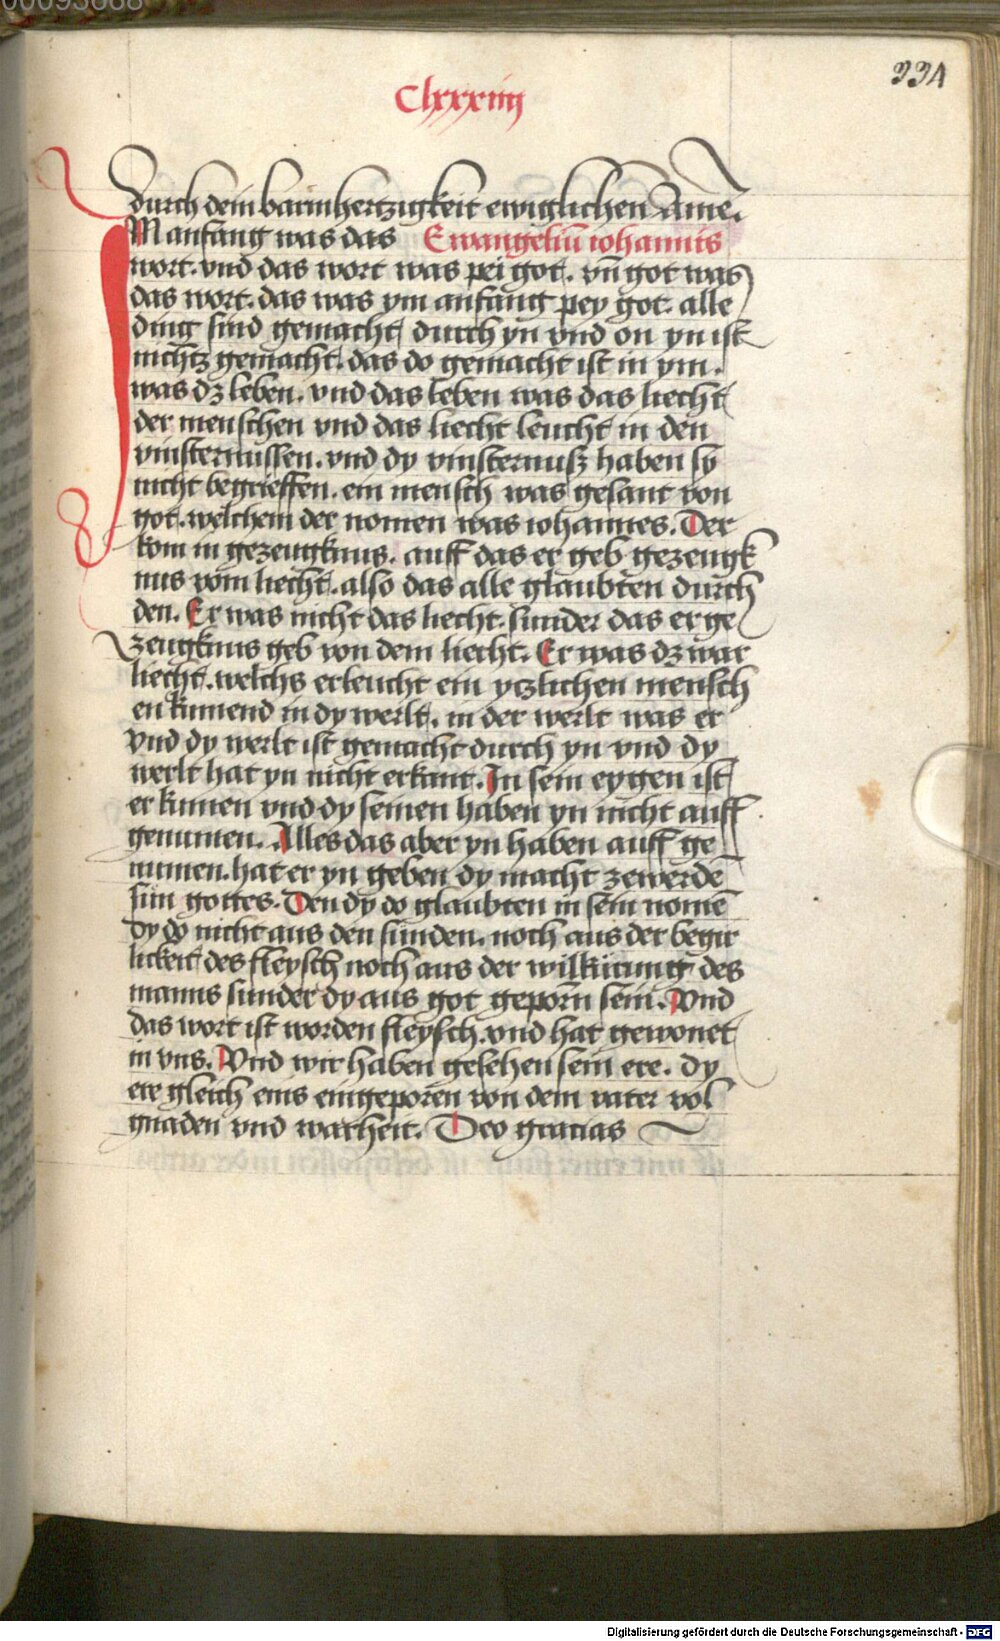 00093668
334
Clxxxiiij
durch dein barmhertzigkeit ewiglichen Ame̅.
IM anfang was das Ewangeliu̅ iohannis
wort. vnd das wort was pei got. vn̅ got was
das wort. das was ym anfang pey got. alle
ding sind gemacht durch yn vnd on yn ist
nichtz gemacht. das do gemacht ist in ym.
was dz leben. vnd das leben was das liecht
der menschen vnd das liecht leucht in den
vinsternussen. vnd dy vinsternusz haben sy
nicht begrieffen. ein mensch was gesant von
got. welchem der nomen was iohannes. Der
kom in gezeugknus. auff das er geb gezeugk
nus vom liecht. also das alle glaubten durch
den. Er was nicht das liecht. sunder das er ge
zeugknus geb von dem liecht. Er was dz war
liecht. welchs erleucht ein yczlichen mensch
en kumend in dy werlt. in der werlt was er
vnd dy werlt ist gemacht durch yn vnd dy
werlt hat yn nicht erkant. In sein eygen ist
er kumen vnd dy seinen haben yn nicht auff
genumen. Alles das aber yn haben auff ge
numen. hat er yn geben dy macht zewerde̅
sun gottes. Den dy do glaubten in sein nome̅
dy do nicht aus den sunden. noch aus der begir
lickeit des fleysch noch aus der wilkurung des
manns sunder dy aus got geporn sein. Vnd
das wort ist worden fleysch. vnd hat gewonet
in vns. Vnd wir haben gesehen sein ere. dy
ere gleich eins eingeporen von dem vater vol
gnaden vnd warheit. Deo gracias
Digitalisierung gefördert durch die Deutsche Forschungsgemeinschaft - DFG